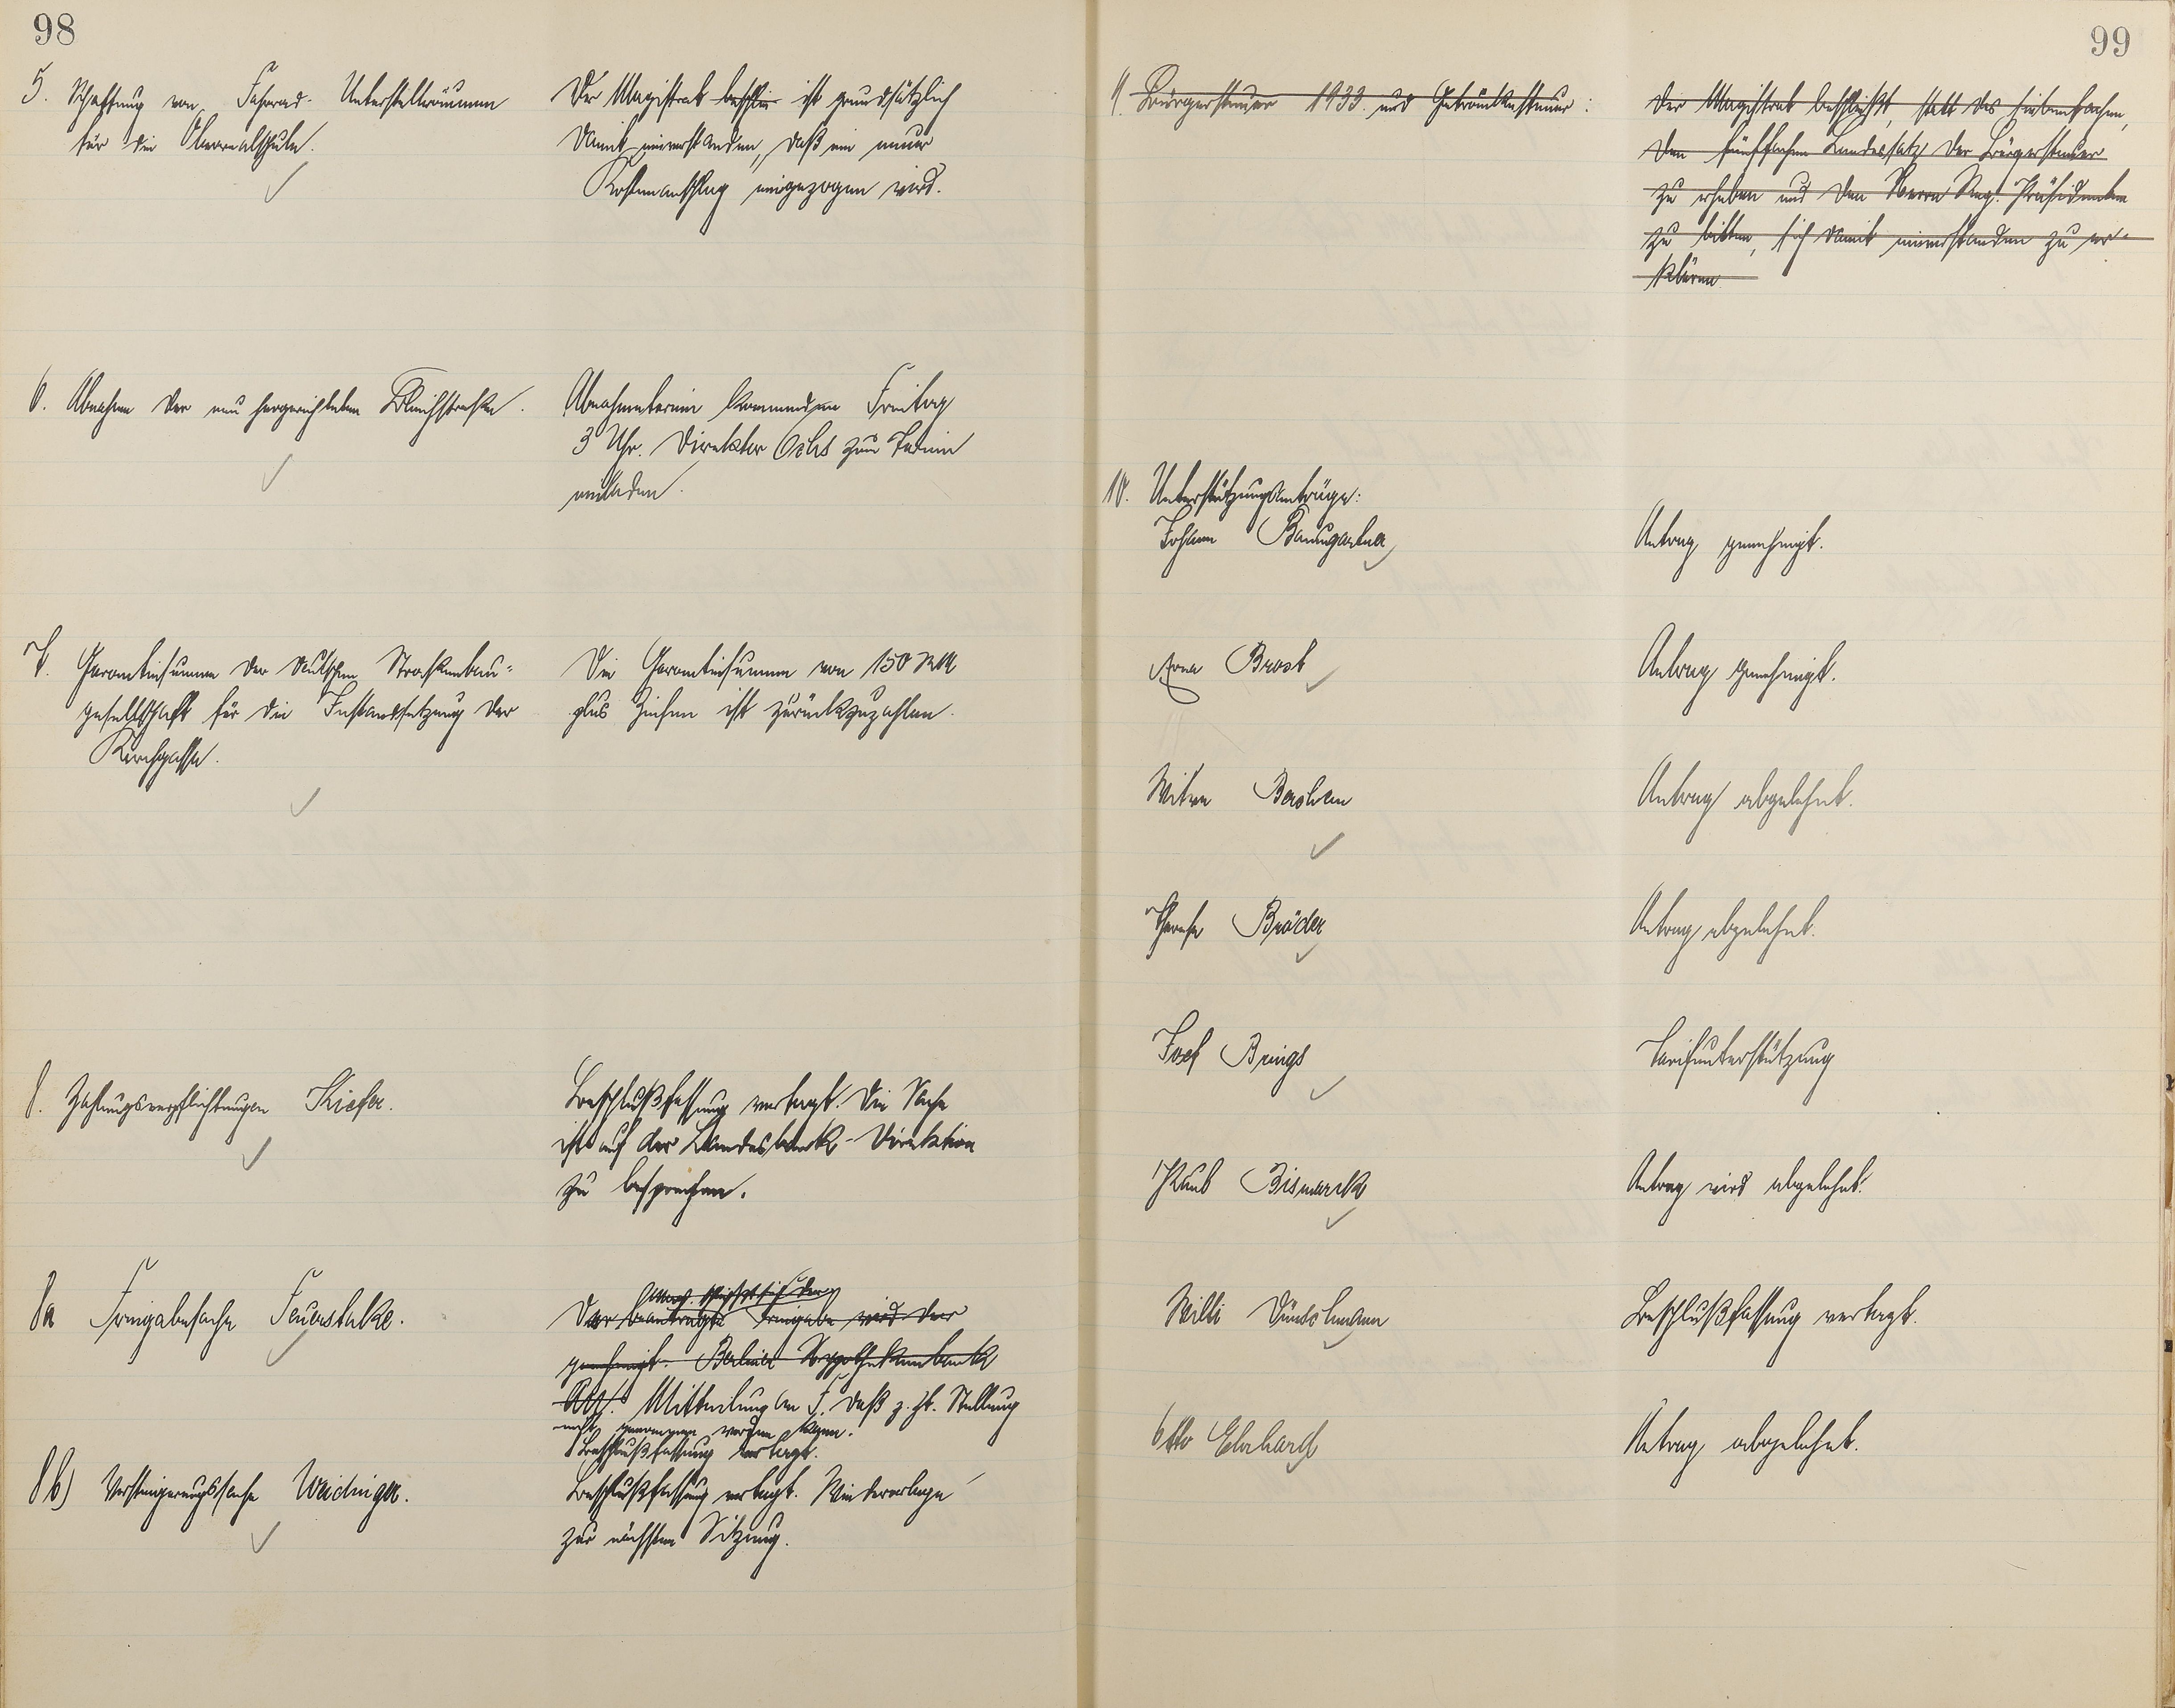 98
5. Schaffung von Fahrrad-Unterstellräumen
für die Oberrealschule.
Der Magistrat beschlie ist grundsätzlich
damit einverstanden, daß ein neuer
Kostenanschlag eingezogen wird.
6. Abnahme der neu hergerichteten Bleichstraße.
Abnahmetermin kommenden Freitag
3 Uhr. Direktor Oehs zum Termin
einladen.
7. Garantiesumme der deutschen Straßenbau-
gesellschaft für die Instandsetzung der
Kirchgasse.
Die Garantiesumme von 150 RM
plus Zinsen ist zurückzuzahlen.
8. Zahlungsverpflichtungen Kiefer.
Beschlußfassung vertagt. Die Sache
ist auf der Landesbank-Direktion
zu besprechen.
8a Freigabesache Feuerstake.
Der beantragte Freigabe wird der
genehmigt. Berliner Hypothekenbank
Mitteilung an F. daß z. Zt. Stellung
nicht genommen werden kann.
Beschlußfassung vertagt.
8b) Versteigerungssache Weidinger.
Beschlußfassung vertagt. Wiedervorlage
zur nächsten Sitzung.
99
9. Bürgersteuer 1933 und Getränkesteuer:
Der Magistrat beschließt, statt des siebenfachen,
den fünffachen Landessatz der Bürgersteuer
zu erheben und den Herrn Reg. Präsidenten
zu bitten, sich damit einverstanden zu er-
klären
10. Unterstützungsanträge:
Johann Baumgartner
Antrag genehmigt.
Anna Brost
Antrag genehmigt.
Witwe
Antrag abgelehnt.
Therese Bröder
Antrag abgelehnt.
Josef Brings
Tarifunterstützung
Bismarck
Antrag wird abgelehnt.
Willi
Beschlußfassung vertagt.
Otto Ehrhard
Antrag abgelehnt.